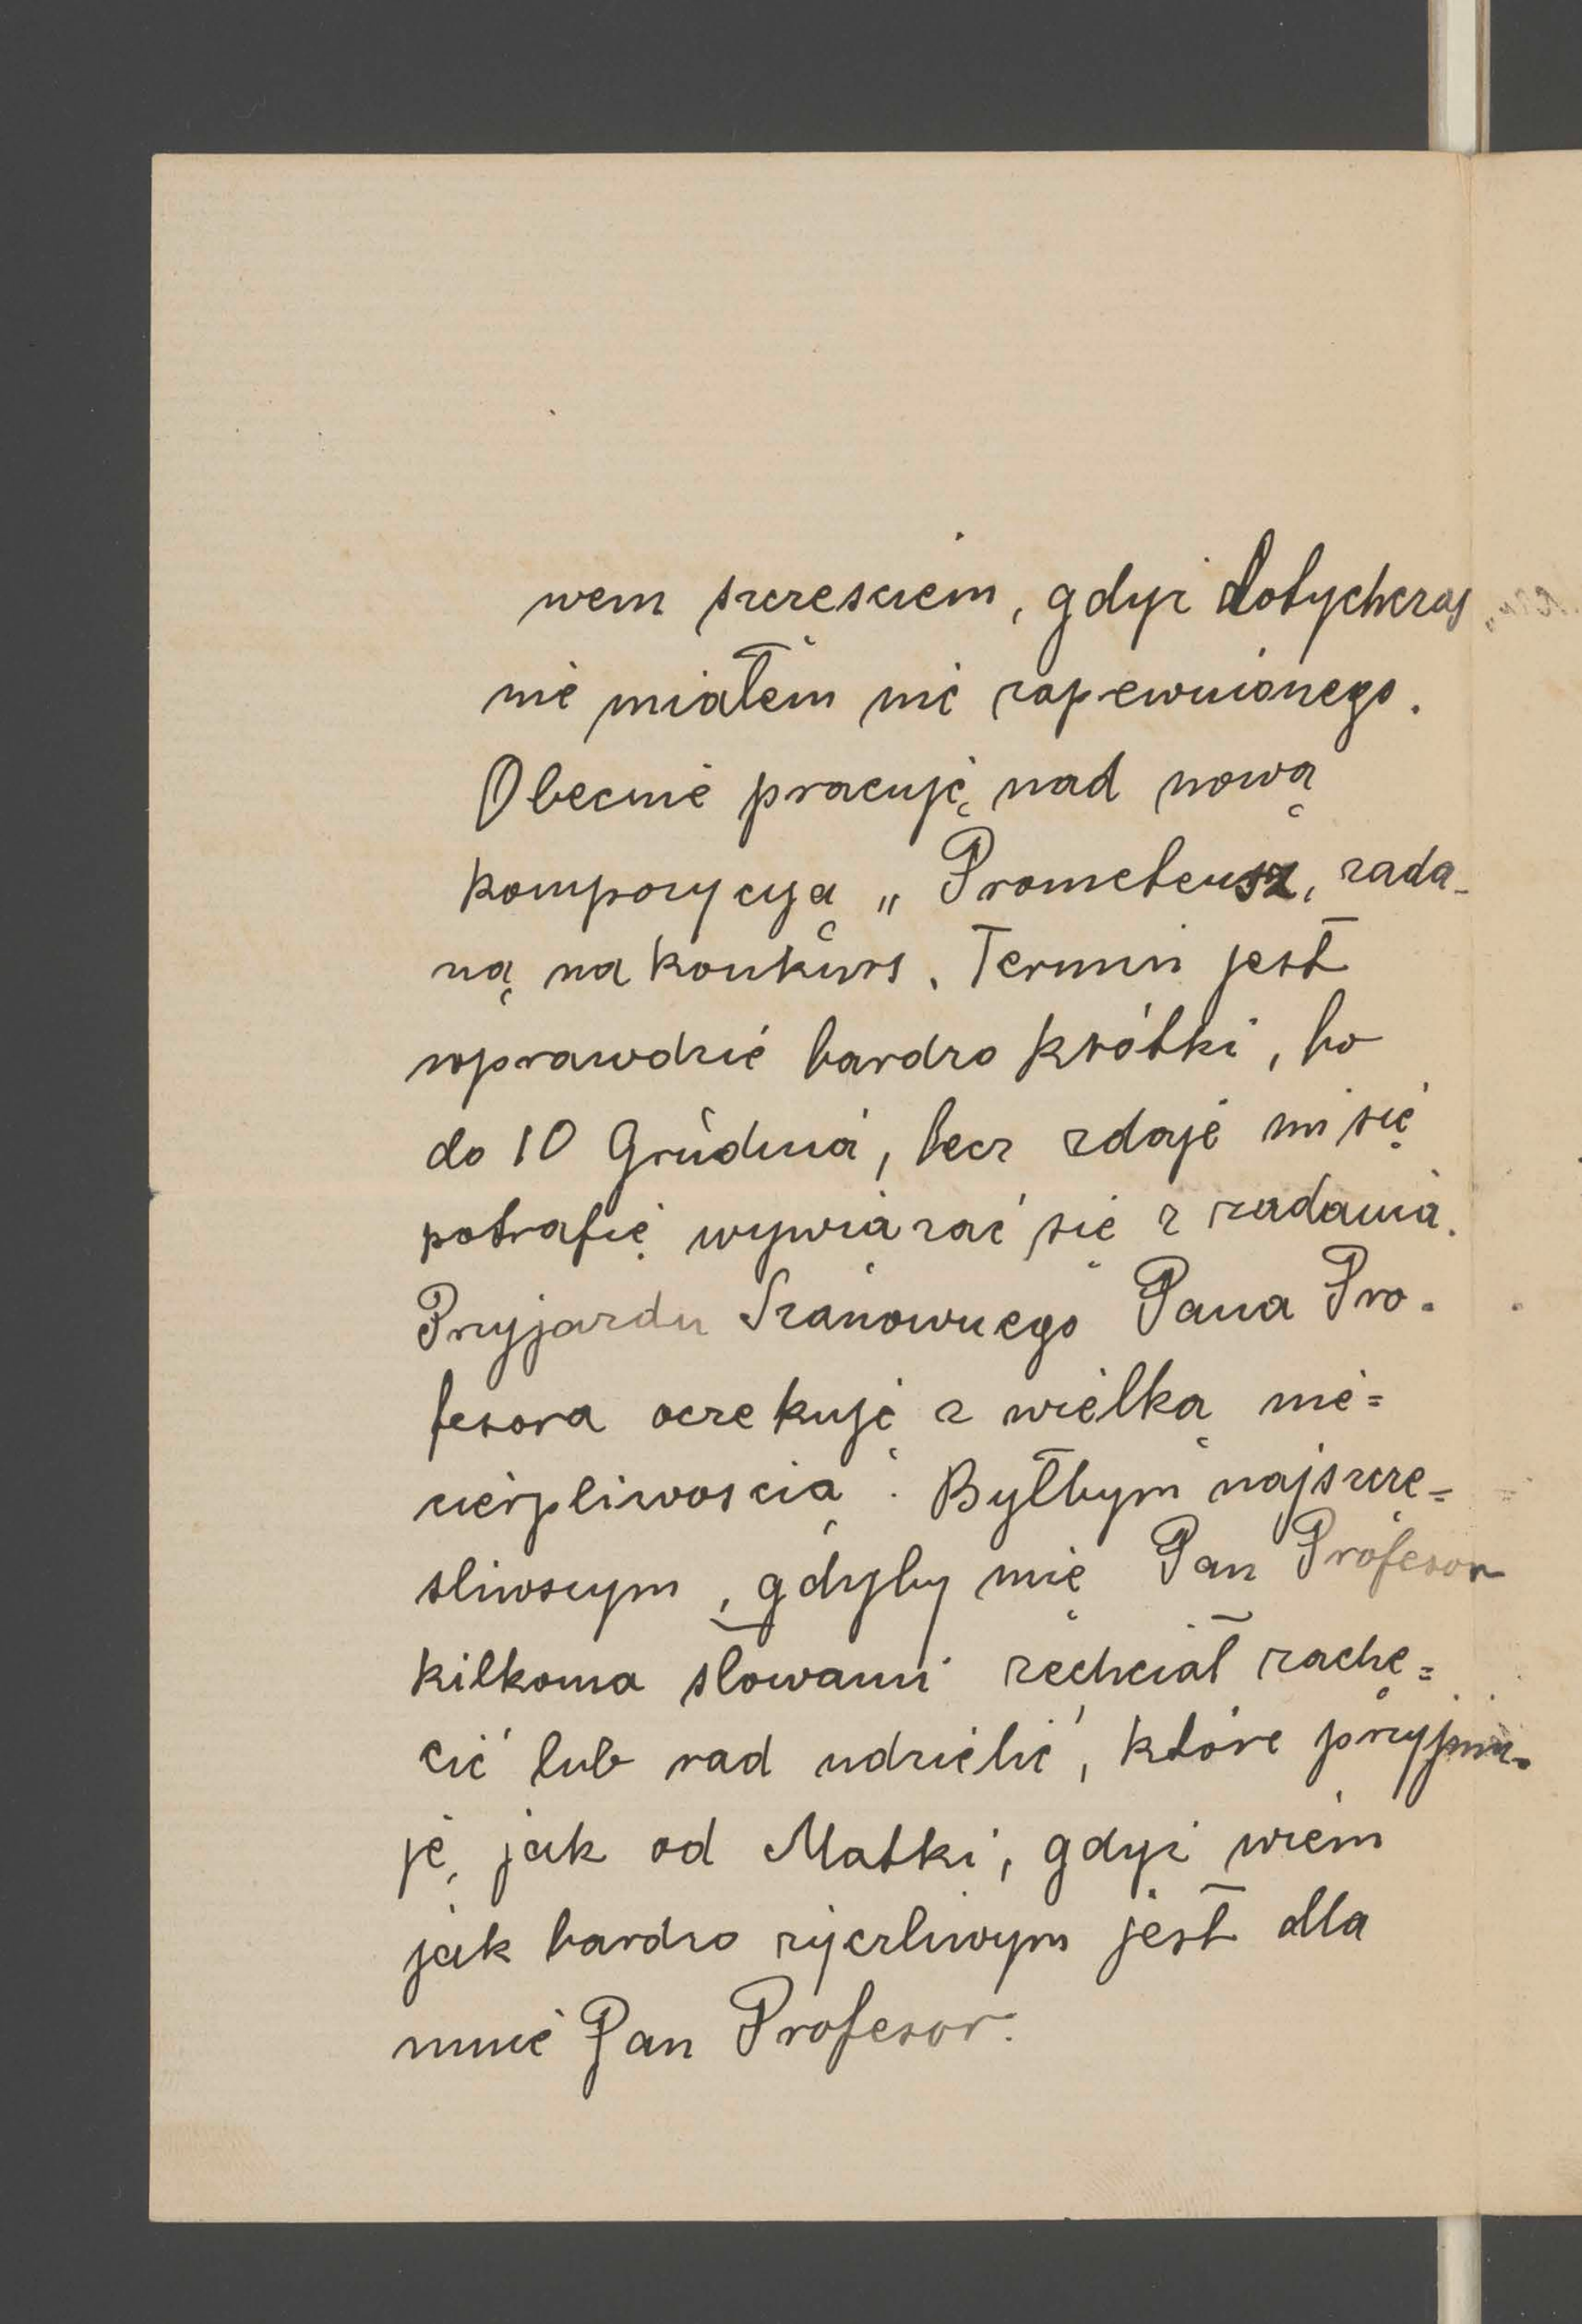 wem szczesciem, gdyż dotychczas
nie miałem nic zapewnionego.
Obecnie pracuję nad nową
kompozycyą „Prometeusz, zada-
ną na konkurs. Termin jest
wprawdzie bardzo krótki, bo
do 10 Grudnia, lecz zdaje mi się
potrafię wywiązać się z zadania.
Przyjazdu Szanownego Pana Pro-
fesora oczekuję z wielką nie=
cierpliwoscią. Byłbym najszczę=
sliwszym, gdyby mię Pan Profesor
kilkoma słowami zechciał zachę=
cić lub rad udzielić, które przyjmu=
ję, jak od Matki, gdyż wiem
jak bardzo życzliwym jest dla
mnie Pan Profesor.